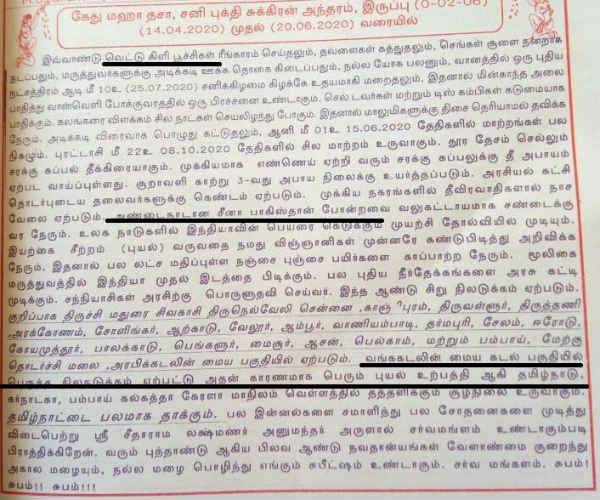 கேது மஹா தசா, சனி புக்தி சுக்கிரன் அந்தரம், இருப்பு (0-02-06)
(14.04.2020) முதல் (20.06.2020) வரையில்
இவ்வாண்டு வெட்டு கிளி பூச்சிகள் ரீங்காரம் செய்தலும், தவளைகள் கத்துதலும், செங்கள் சூளை நன்றாக
நடப்பதும், மருத்துவர்களுக்கு அடிக்கடி ஊக்க தொகை கிடைப்பதும், நல்ல யோக பலனும், வானத்தில் ஒரு புதிய
நட்சத்திரம் ஆடி மீ 10உ (25.07.2020) சனிக்கிழமை கிழக்கே உதயமாகி மறைதலும், இதனால் மின்காந்த அலை
பாதித்து வான்வெளி போக்குவரத்தில் ஒரு பிரச்சனை உண்டாகும். செல் டவர்கள் மற்றும் டிஸ் கம்பிகள் கடுமையாக
பாதிக்கும். கலங்கரை விளக்கம் சில நாட்கள் செயலிழந்து போகும். இதனால் மாலுமிகளுக்கு திசை தெரியாமல் தவிக்க
நேரும். அடிக்கடி விரைவாக பொழுது கட்டுதலும், ஆனி மீ 01உ 15.06.2020 தேதிகளில் மாற்றங்கள் பல
நிகழும். புரட்டாசி மீ 22உ 08.10.2020 தேதிகளில் சில மாற்றம் உருவாகும். தூர தேசம் செல்லும்
சரக்கு கப்பல் தீக்கிரையாகும். முக்கியமாக எண்ணெய் ஏற்றி வரும் சரக்கு கப்பலுக்கு தீ அபாயம்
ஏற்பட வாய்ப்புள்ளது. சூறாவளி காற்று 3-வது அபாய நிலைக்கு உயர்த்தப்படும். அரசியல் கட்சி
தொடர்புடைய தலைவர்களுக்கு கெண்டம் ஏற்படும். முக்கிய நகரங்களில் தீவிரவாதிகளால் நாச
வேலை ஏற்படும். அண்டைநாடான சீனா பாகிஸ்தான் போன்றவை வலுகட்டாயமாக சண்டைக்கு
வர நேரும். உலக நாடுகளில் இந்தியாவின் பெயரை கெடுக்கும் முயற்சி தோல்வியில் முடியும்.
இயற்கை சீற்றம் (புயல்) வருவதை நமது விஞ்ஞானிகள் முன்னரே கண்டுபிடித்து அறிவிக்க
நேரும். இதனால் பல லட்ச மதிப்புள்ள நஞ்சை புஞ்சை பயிர்களை காப்பாற்ற நேரும். மூலிகை
மருத்துவத்தில் இந்தியா முதல் இடத்தை பிடிக்கும். பல புதிய நீர்தேக்கங்களை அரசு கட்டி
முடிக்கும். சந்நியாசிகள் அரசிற்கு பொருளுதவி செய்வர். இந்த ஆண்டு சிறு நிலடுக்கம் ஏற்படும்.
குறிப்பாக திருச்சி மதுரை சிவகாசி திருநெல்வேலி சென்னை காஞ்சிபுரம், திருவள்ளூர், திருத்தணி
அரக்கோணம், சோளிங்கர், ஆற்காடு, வேலூர், ஆம்பூர், வாணியம்பாடி, தர்மபுரி, சேலம், ஈரோடு,
கோயமுத்தூர், பாலக்காடு, பெங்களூர், மைசூர், ஆசன், பெல்காம், மற்றும் பம்பாய், மேற்கு
தொடர்ச்சி மலை அரபிக்கடலின் மைய பகுதியில் ஏற்படும். வங்ககடலின் மைய கடல் பகுதியில்
நிலடுக்கம் ஏற்பட்டு அதன் காரணமாக பெரும் புயல் உற்பத்தி ஆகி தமிழ்நாடு,
கர்நாடகா, பம்பாய் கல்கத்தா கேரளா மாநிலம் வெள்ளத்தில் தத்தளிக்கும் சூழ்நிலை உருவாகும்.
தமிழ்நாட்டை பலமாக தாக்கும். பல இன்னல்களை சமாளித்து பல சோதனைகளை முடித்து
விடைபெற்று ஸ்ரீ சீதாராம லக்ஷ்மணர் அனுமந்தர் அருளால் சர்வமங்களம் உண்டாகும்படி
பிராத்திக்கிறேன். வரும் புத்தாண்டு ஆகிய பிலவ ஆண்டு நவதான்யங்கள் வேளாண்மை குறைந்து
அகால மழையும், நல்ல மழை பொழிந்து எங்கும் சுபீட்ஷம் உண்டாகும். சர்வ மங்களம். சுபம்!
சுபம்!! சுபம்!!!